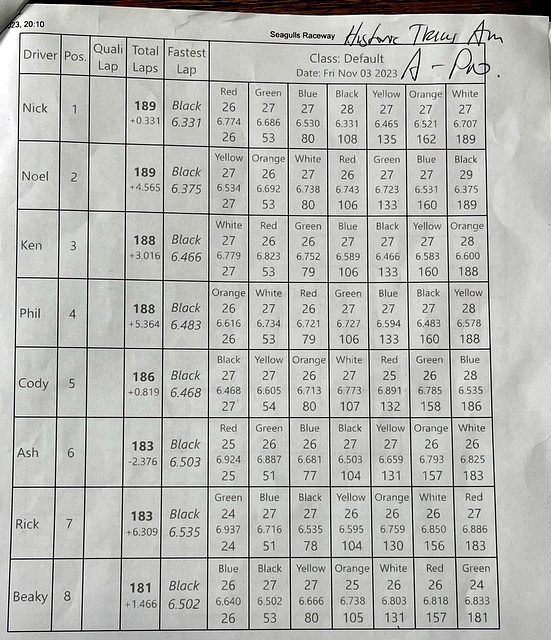 023, 20:10
Seagulls Raceway Historic Trans Am
Class: Default A - Pro.
Date: Fri Nov 03 2023
Driver Pos. Quali Lap Total Laps Fastest Lap
Red Green Blue Black Yellow Orange White
Nick 1 189 Black 26 27 27 28 27 27 27
+0.331 6.331 6.774 6.686 6.530 6.331 6.465 6.521 6.707
26 53 80 108 135 162 189
Yellow Orange White Red Green Blue Black
Noel 2 189 Black 27 26 27 26 27 27 29
+4.565 6.375 6.534 6.692 6.738 6.743 6.723 6.531 6.375
27 53 80 106 133 160 189
White Red Green Blue Black Yellow Orange
Ken 3 188 Black 27 26 26 27 27 27 28
+3.016 6.466 6.779 6.823 6.752 6.589 6.466 6.583 6.600
27 53 79 106 133 160 188
Orange White Red Green Blue Black Yellow
Phil 4 188 Black 26 27 26 27 27 27 28
+5.364 6.483 6.616 6.734 6.721 6.727 6.594 6.483 6.578
26 53 79 106 133 160 188
Black Yellow Orange White Red Green Blue
Cody 5 186 Black 27 27 26 27 25 26 28
+0.819 6.468 6.468 6.605 6.713 6.773 6.891 6.785 6.535
27 54 80 107 132 158 186
Red Green Blue Black Yellow Orange White
Ash 6 183 Black 25 26 26 27 27 26 26
-2.376 6.503 6.924 6.887 6.681 6.503 6.659 6.793 6.825
25 51 77 104 131 157 183
Green Blue Black Yellow Orange White Red
Rick 7 183 Black 24 27 27 26 26 26 27
+6.309 6.535 6.937 6.716 6.535 6.595 6.759 6.850 6.886
24 51 78 104 130 156 183
Blue Black Yellow Orange White Red Green
Beaky 8 181 Black 26 27 27 25 26 26 24
+1.466 6.502 6.640 6.502 6.666 6.738 6.803 6.818 6.833
26 53 80 105 131 157 181